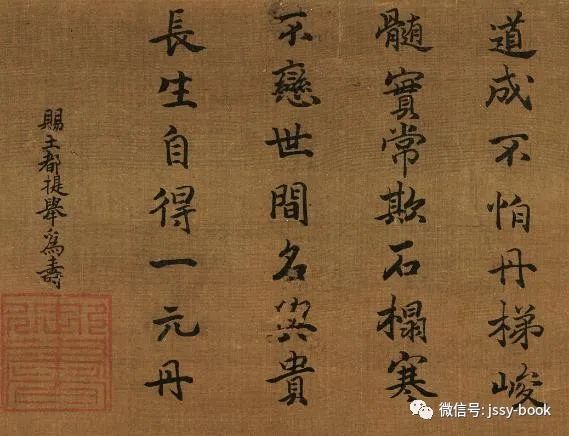 道成不怕丹梯峻
髓實常欺石榻寒
不戀世間名與貴
長生自得一元丹
賜王都提舉為壽
微信号: jssy-book